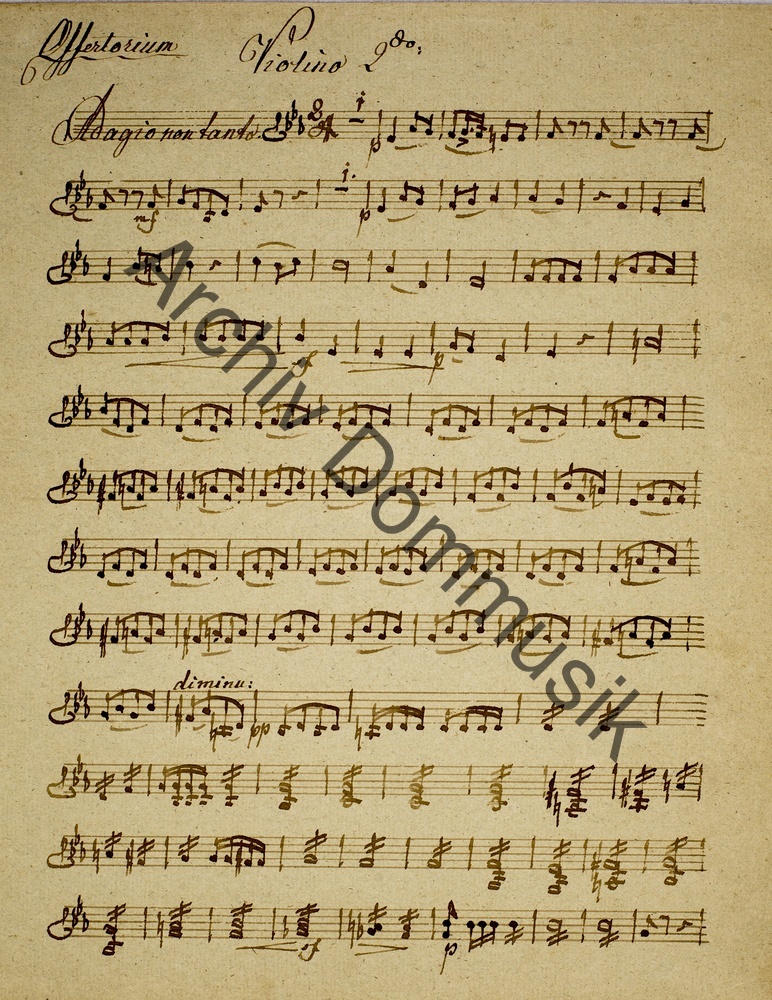 Offertorium
Violino 2do:
Adagio non tanto. 2/4 1
p
mf 1. p
sf p
diminu:
pp
sf p
Archiv Dommusik